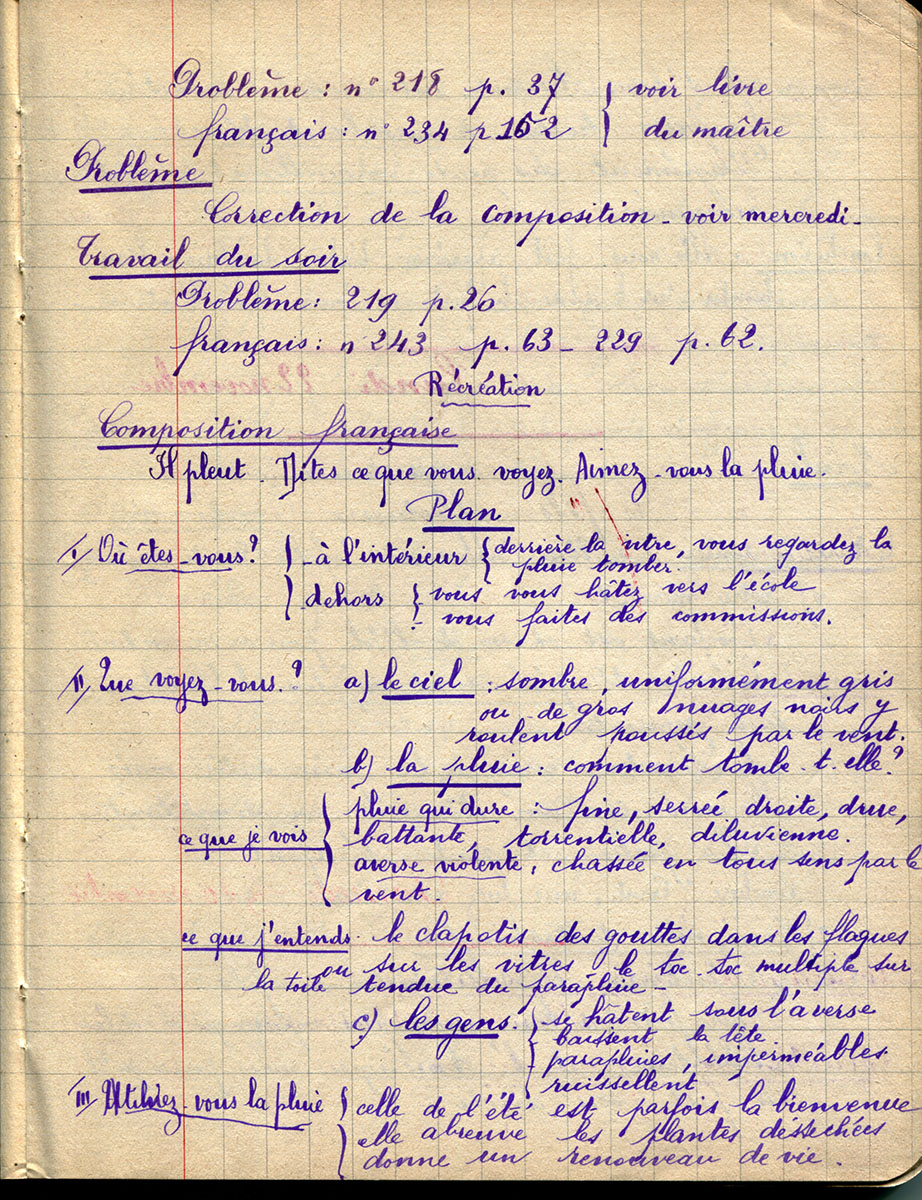 Problème : n° 218 p. 37 } voir livre
français : n° 234 p 152 } du maître
Problème
Correction de la composition - voir mercredi -
Travail du soir
Problème : 219 p. 26
français : n 243 p. 63 - 229 p. 62.
Récréation
Composition française
Il pleut. Dites ce que vous voyez. Aimez-vous la pluie.
Plan
I/ Où êtes-vous ? } - à l'intérieur { derrière la vitre, vous regardez la
pluie tomber.
dehors { - vous vous hâtez vers l'école
- vous faites des commissions.
II/ Que voyez-vous. ? a) le ciel : sombre, uniformément gris
ou de gros nuages noirs y
roulent poussés par le vent.
b) la pluie : comment tombe-t-elle ?
ce que je vois { pluie qui dure : fine, serrée, droite, drue,
battante, torrentielle, diluvienne.
averse violente, chassée en tous sens par le
vent.
ce que j'entends. le clapotis des gouttes dans les flaques
ou sur les vitres le toc-toc multiple sur
la toile tendue du parapluie -
c) les gens. { - se hâtent sous l'averse
baissent la tête
parapluies, imperméables
ruissellent
III - vous la pluie } celle de l'été est parfois la bienvenue
elle abreuve les plantes désséchées
donne un renouveau de vie.